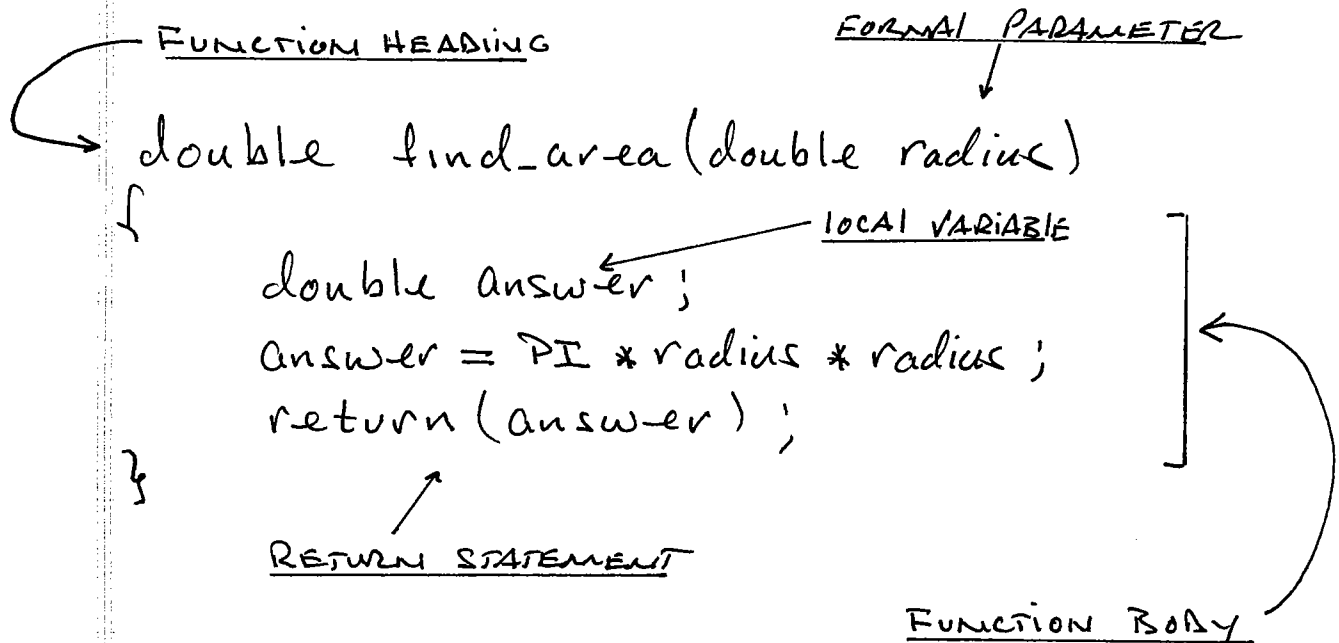 FUNCTION HEADING
FORMAL PARAMETER
double find_area(double radius)
{
LOCAL VARIABLE
double answer;
answer = PI * radius * radius;
return(answer);
}
RETURN STATEMENT
FUNCTION BODY